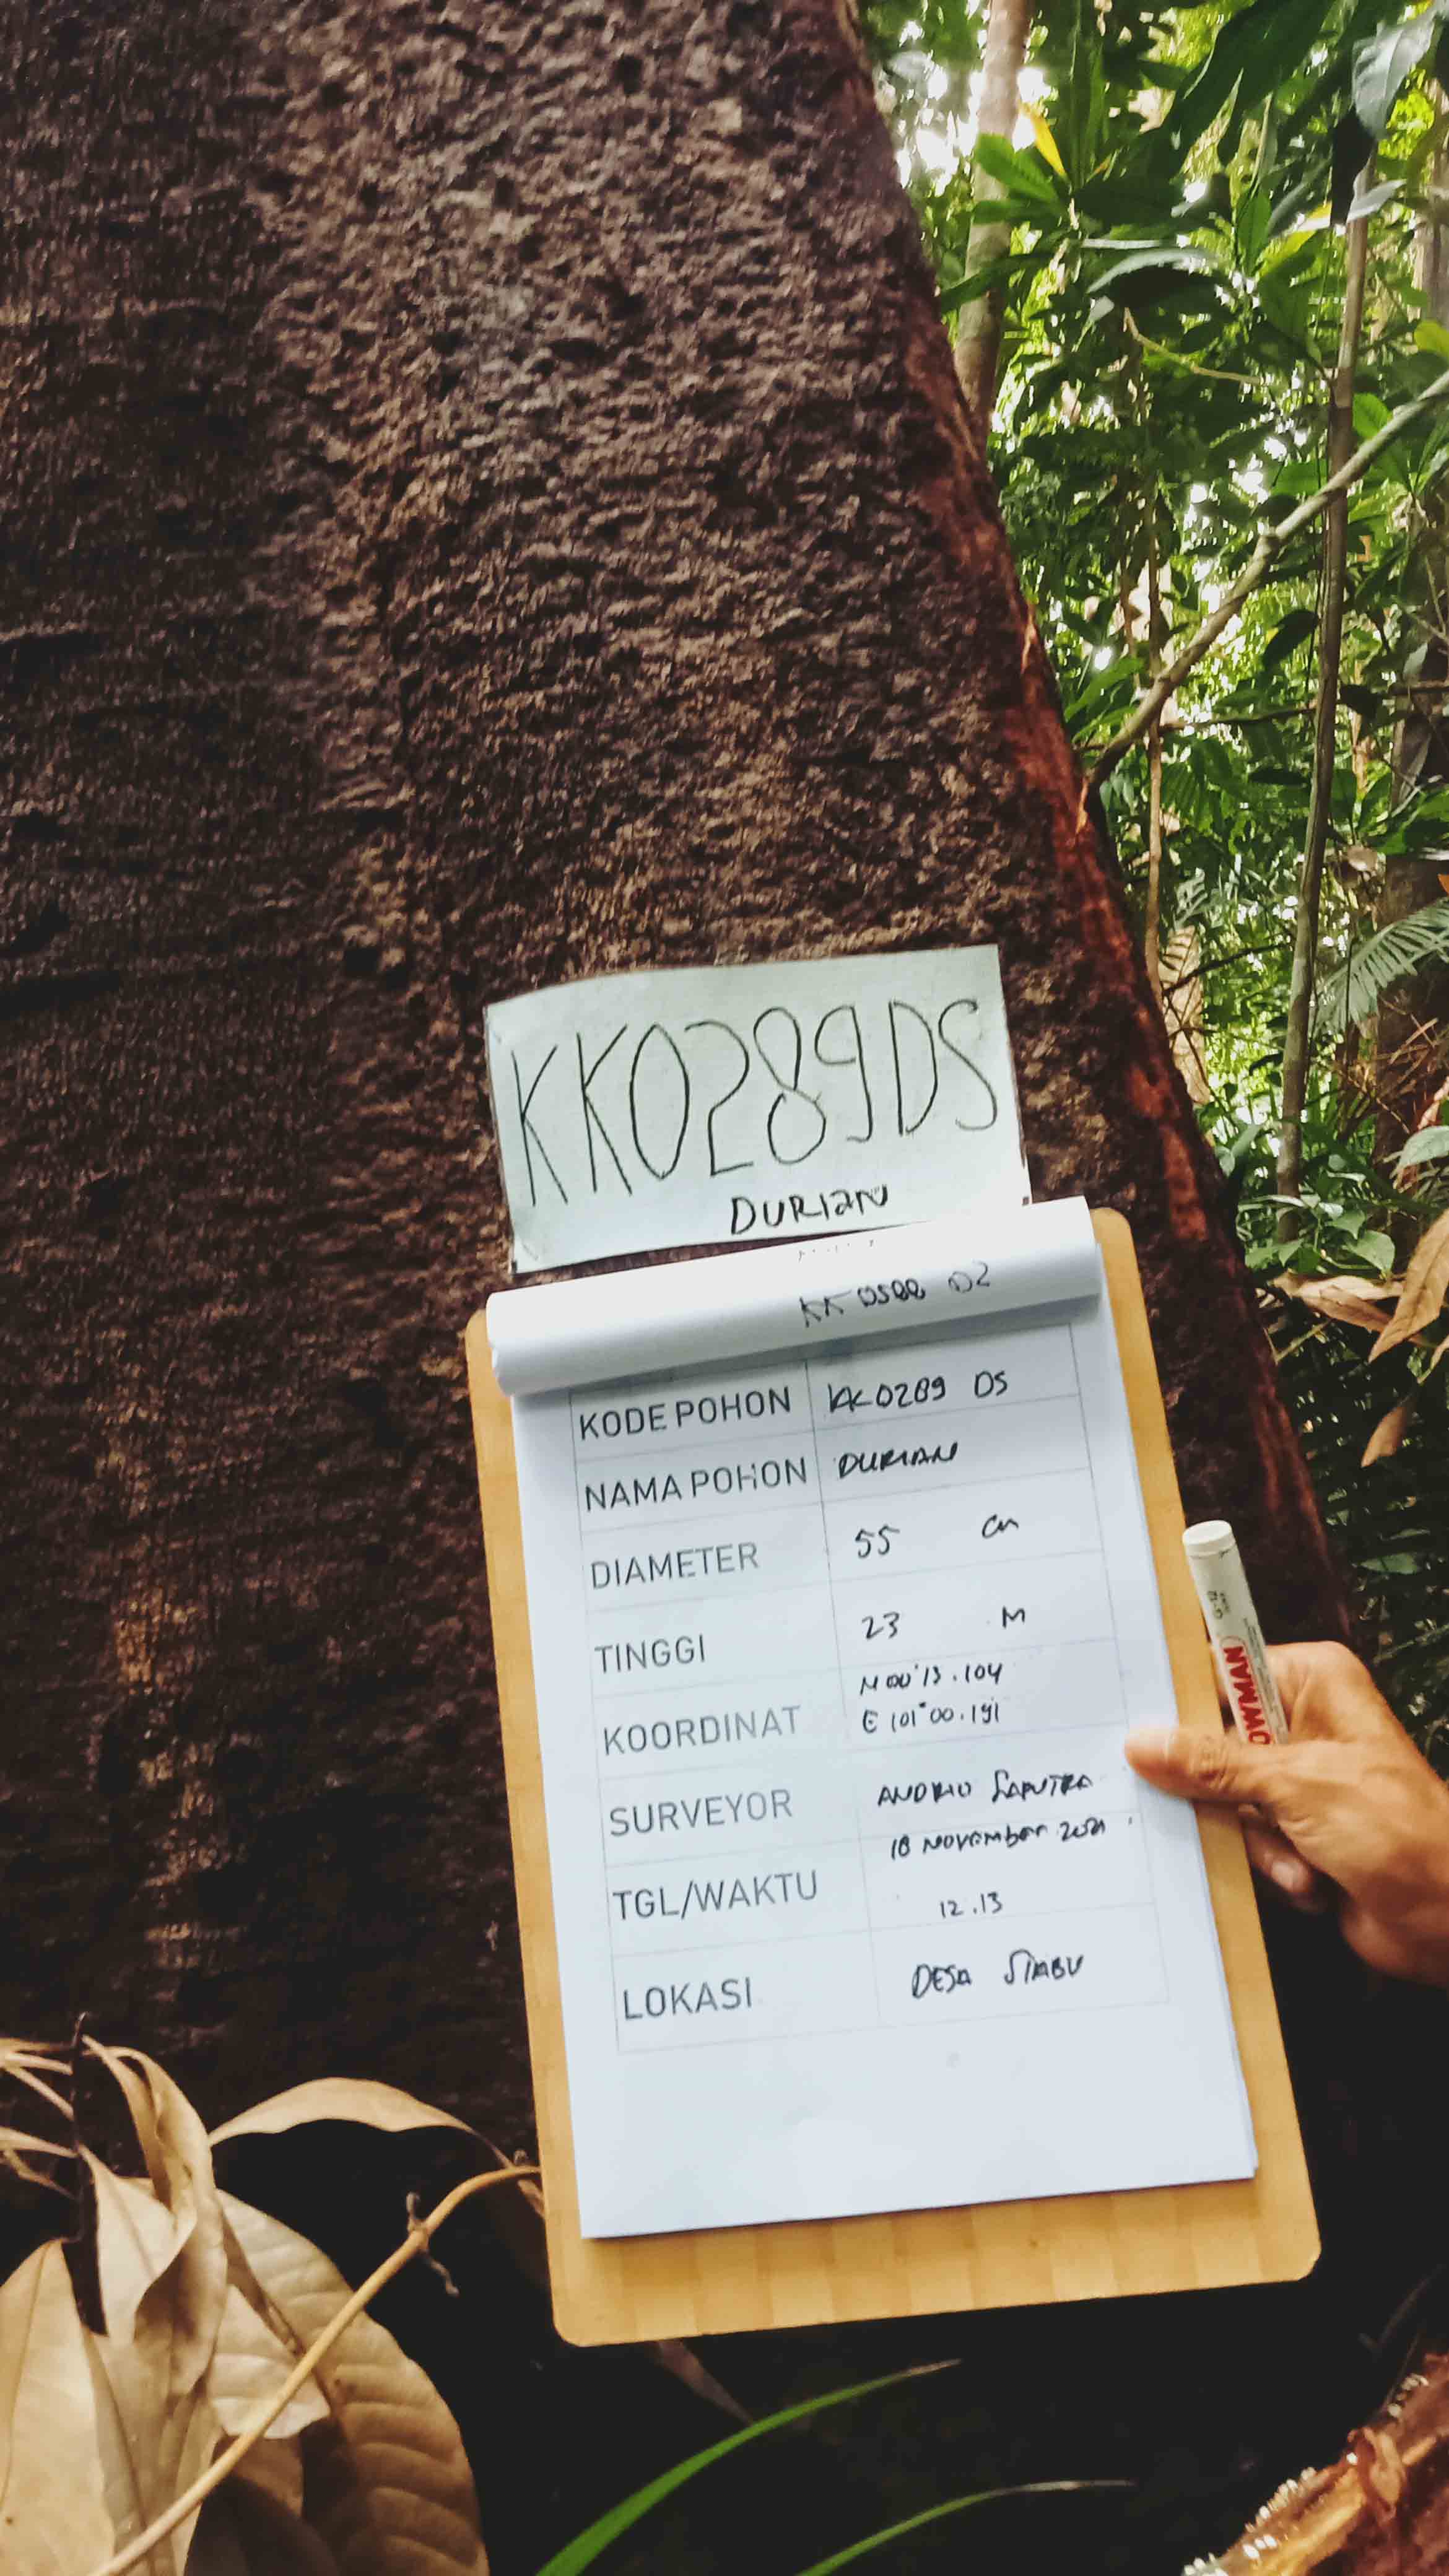 KK0289DS
DURIAN
KODE POHON KK0289 DS
NAMA POHON DURIAN
DIAMETER 55 cm
TINGGI 23 M
KOORDINAT N 00°13.104
E 101°00.191
SURVEYOR ANDRIO SAPUTRA
TGL/WAKTU 18 November 2021
12.13
LOKASI DESA SIABU
OWMAN